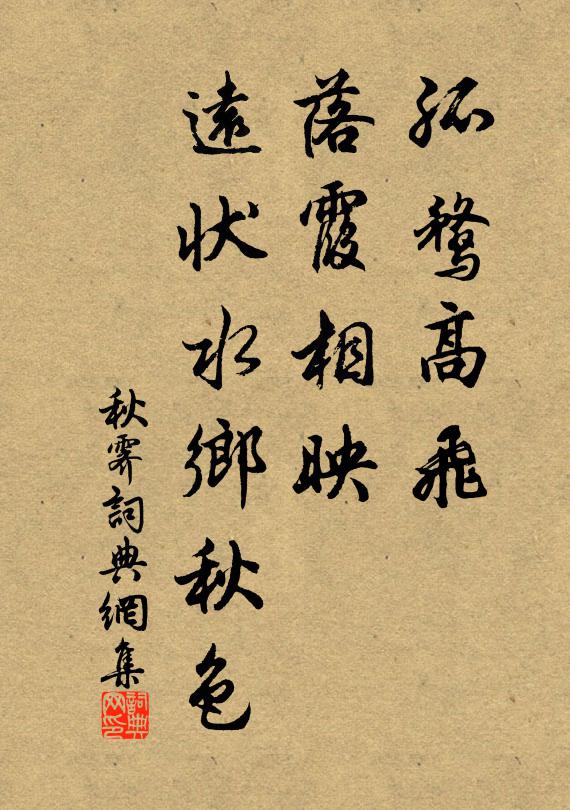 孤鶩高飛
落霞相映
遠狀水鄉秋色
秋霽詞典網集
詞典
网印